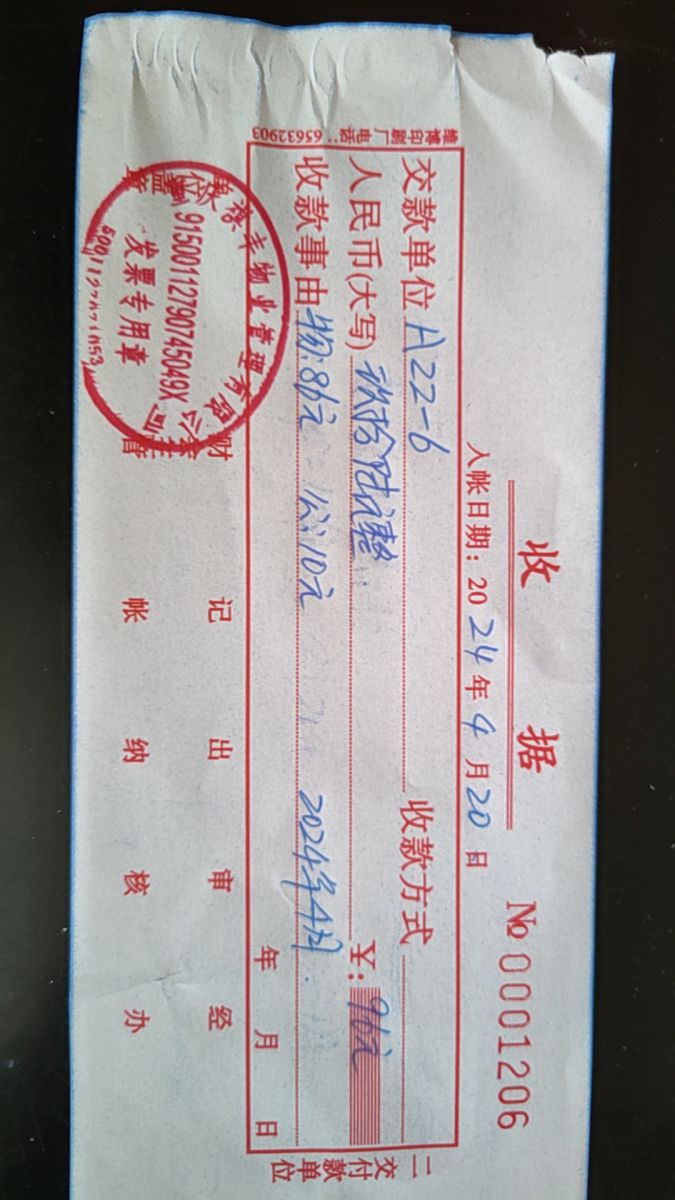 收 据 № 0001206
入帐日期：2024年4月20日
交款单位 A22-6 收款方式
人民币(大写) 玖拾陆元整 ¥：96元
收款事由 物:86元 公:10元 2024年4月.
年 月 日
二交付款单位
维博印刷厂 电话：65632903
单位盖章
财会主管
记帐
出纳
审核
经办
禄丰物业管理有限公司
91500112790745049X
发票专用章